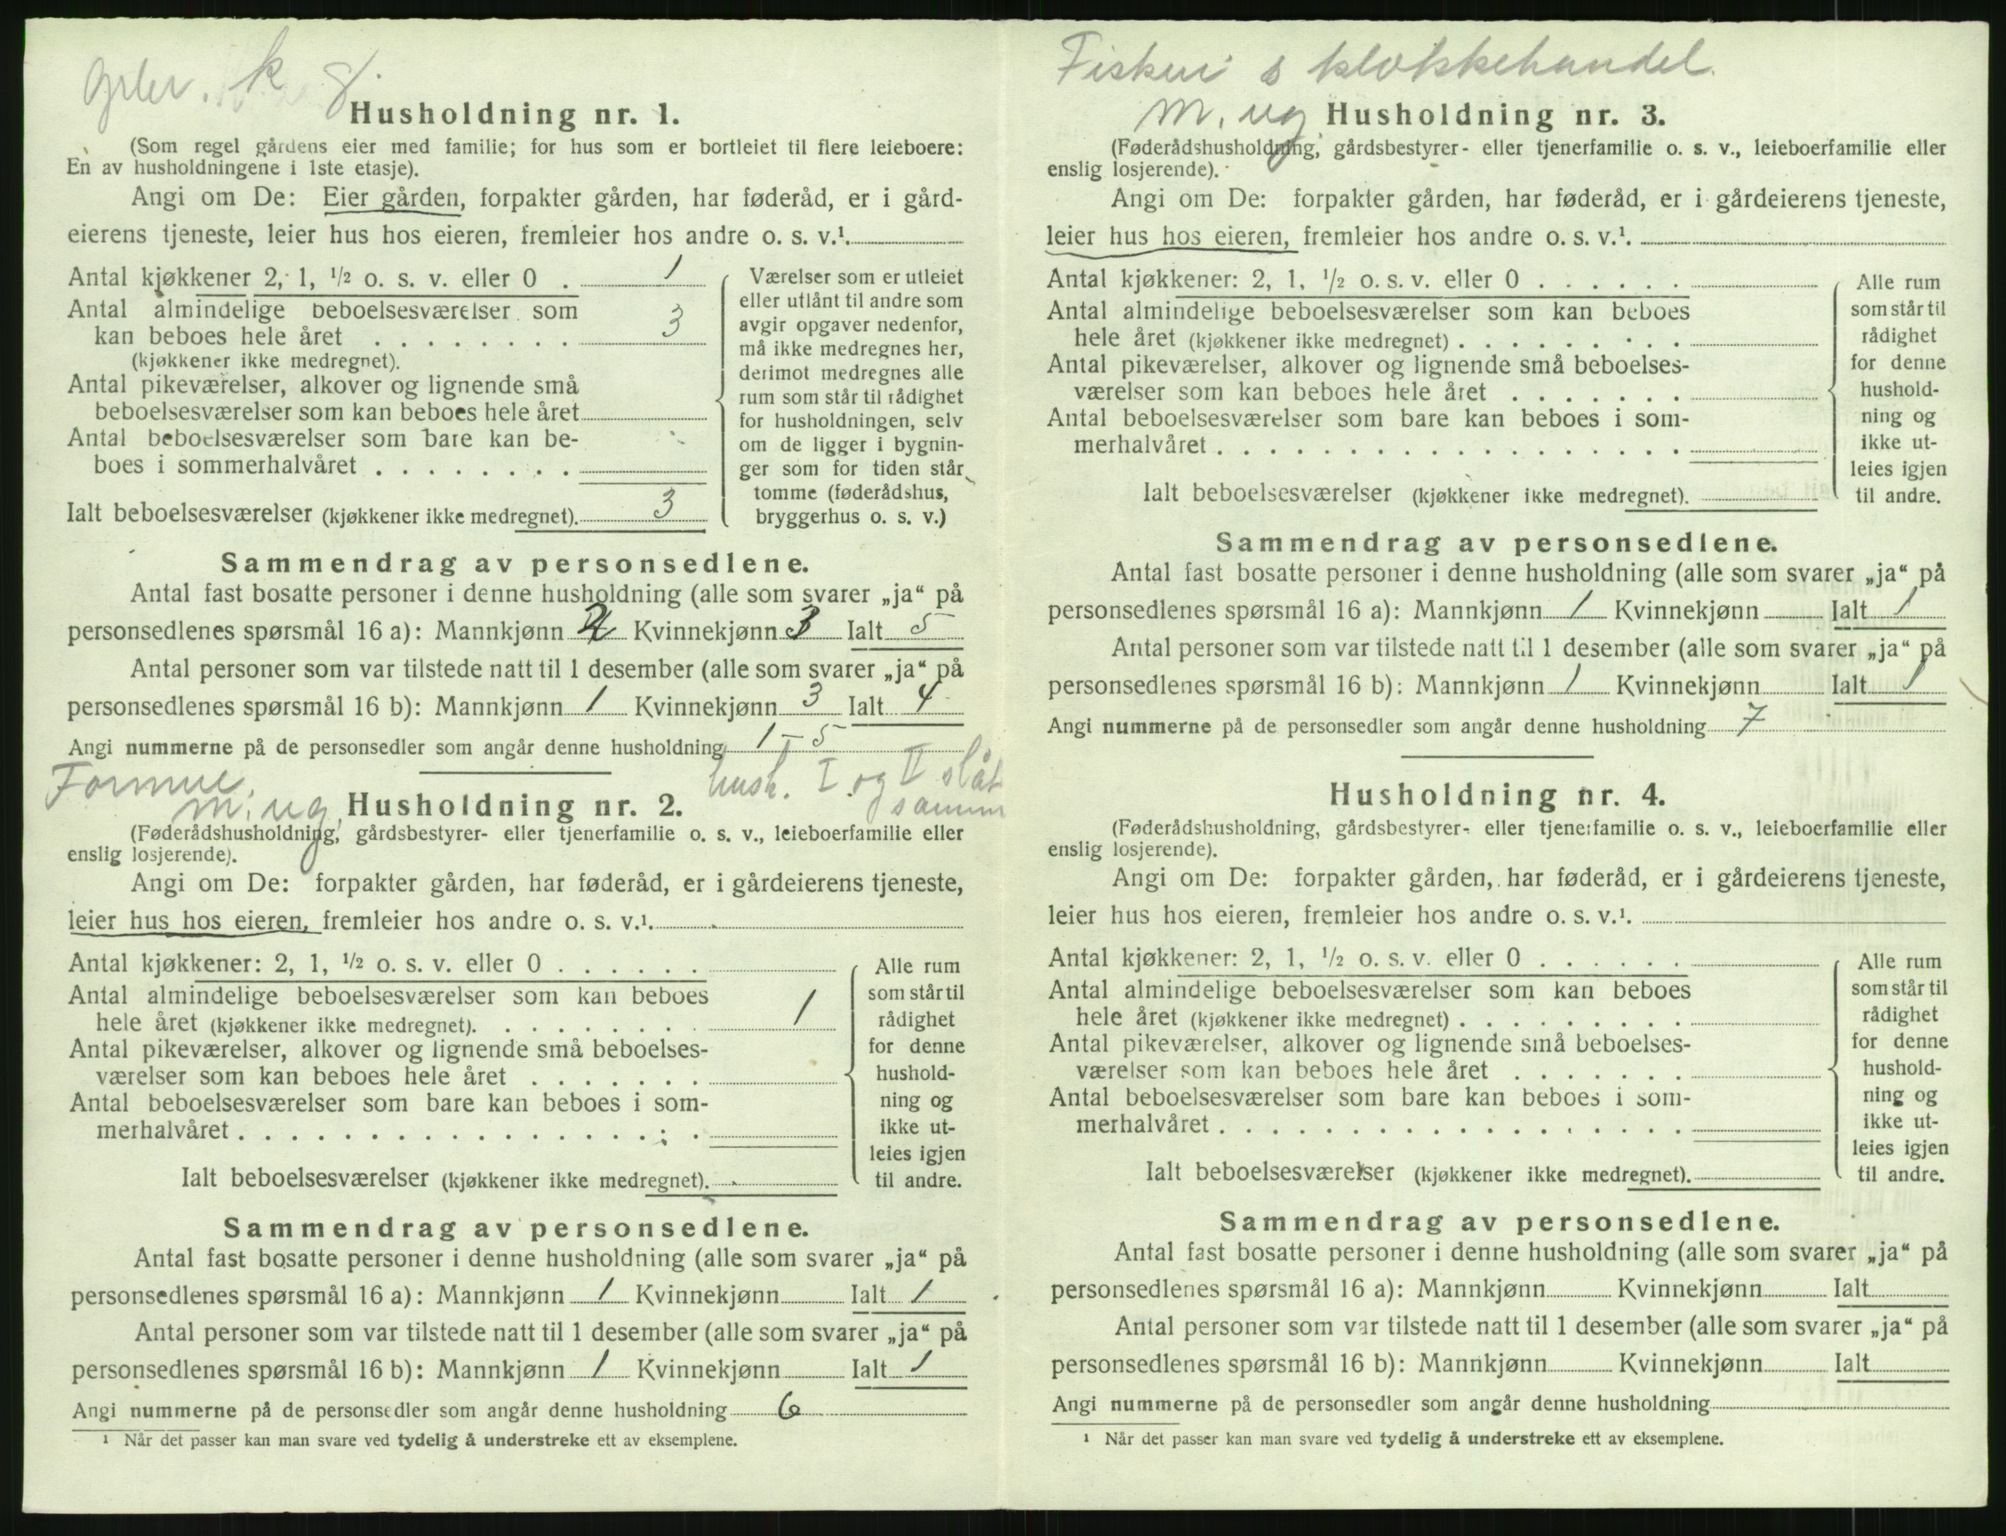 k g.
Husholdning nr. 1.
(Som regel gårdens eier med familie; for hus som er bortleiet til flere leieboere:
En av husholdningene i 1ste etasje).
Angi om De: Eier gården, forpakter gården, har føderåd, er i gård-
eierens tjeneste, leier hus hos eieren, fremleier hos andre o. s. v.¹.
Antal kjøkkener 2, 1, ½ o. s. v. eller 0 . 1
Antal almindelige beboelsesværelser som
kan beboes hele året . . . . . . . . 3
(kjøkkener ikke medregnet).
Antal pikeværelser, alkover og lignende små
beboelsesværelser som kan beboes hele året
Antal beboelsesværelser som bare kan be-
boes i sommerhalvåret . . . . . . . .
Ialt beboelsesværelser (kjøkkener ikke medregnet). 3
Værelser som er utleiet
eller utlånt til andre som
avgir opgaver nedenfor,
må ikke medregnes her,
derimot medregnes alle
rum som står til rådighet
for husholdningen, selv
om de ligger i bygnin-
ger som for tiden står
tomme (føderådshus,
bryggerhus o. s. v.)
Sammendrag av personsedlene.
Antal fast bosatte personer i denne husholdning (alle som svarer „ja“ på
personsedlenes spørsmål 16 a): Mannkjønn 2 Kvinnekjønn 3 Ialt 5
Antal personer som var tilstede natt til 1 desember (alle som svarer „ja“ på
personsedlenes spørsmål 16 b): Mannkjønn 1 Kvinnekjønn 3 Ialt 4
Angi nummerne på de personsedler som angår denne husholdning 1–5
Formue. husk. I og II slåt
m. ug. Husholdning nr. 2. samm
(Føderådshusholdning, gårdsbestyrer- eller tjenerfamilie o. s. v., leieboerfamilie eller
enslig losjerende).
Angi om De: forpakter gården, har føderåd, er i gårdeierens tjeneste,
leier hus hos eieren, fremleier hos andre o. s. v.¹.
Antal kjøkkener: 2, 1, ½ o. s. v. eller 0 . . . . . .
Antal almindelige beboelsesværelser som kan beboes
hele året (kjøkkener ikke medregnet). . . . . . . . . 1
Antal pikeværelser, alkover og lignende små beboelses-
værelser som kan beboes hele året . . . . . . .
Antal beboelsesværelser som bare kan beboes i som-
merhalvåret . . . . . . . . . . . . . . . . . .
Ialt beboelsesværelser (kjøkkener ikke medregnet).
Alle rum
som står til
rådighet
for denne
hushold-
ning og
ikke ut-
leies igjen
til andre.
Sammendrag av personsedlene.
Antal fast bosatte personer i denne husholdning (alle som svarer „ja“ på
personsedlenes spørsmål 16 a): Mannkjønn 1 Kvinnekjønn Ialt 1
Antal personer som var tilstede natt til 1 desember (alle som svarer „ja“ på
personsedlenes spørsmål 16 b): Mannkjønn 1 Kvinnekjønn Ialt 1
Angi nummerne på de personsedler som angår denne husholdning 6
¹ Når det passer kan man svare ved tydelig å understreke ett av eksemplene.
Fiskeri & klokkehandel.
m. ug Husholdning nr. 3.
(Føderådshusholdning, gårdsbestyrer- eller tjenerfamilie o. s. v., leieboerfamilie eller
enslig losjerende).
Angi om De: forpakter gården, har føderåd, er i gårdeierens tjeneste,
leier hus hos eieren, fremleier hos andre o. s. v.¹.
Antal kjøkkener: 2, 1, ½ o. s. v. eller 0 . . . . . .
Antal almindelige beboelsesværelser som kan beboes
hele året (kjøkkener ikke medregnet) . . . . . . . . .
Antal pikeværelser, alkover og lignende små beboelses-
værelser som kan beboes hele året . . . . . . .
Antal beboelsesværelser som bare kan beboes i som-
merhalvåret . . . . . . . . . . . . . . . . . .
Ialt beboelsesværelser (kjøkkener ikke medregnet).
Alle rum
som står til
rådighet
for denne
hushold-
ning og
ikke ut-
leies igjen
til andre.
Sammendrag av personsedlene.
Antal fast bosatte personer i denne husholdning (alle som svarer „ja“ på
personsedlenes spørsmål 16 a): Mannkjønn 1 Kvinnekjønn Ialt 1
Antal personer som var tilstede natt til 1 desember (alle som svarer „ja“ på
personsedlenes spørsmål 16 b): Mannkjønn 1 Kvinnekjønn Ialt 1
Angi nummerne på de personsedler som angår denne husholdning 7
Husholdning nr. 4.
(Føderådshusholdning, gårdsbestyrer- eller tjenerfamilie o. s. v., leieboerfamilie eller
enslig losjerende).
Angi om De: forpakter gården, har føderåd, er i gårdeierens tjeneste,
leier hus hos eieren, fremleier hos andre o. s. v.¹.
Antal kjøkkener: 2, 1, ½ o. s. v. eller 0 . . . . . .
Antal almindelige beboelsesværelser som kan beboes
hele året (kjøkkener ikke medregnet) . . . . . . . . .
Antal pikeværelser, alkover og lignende små beboelses-
værelser som kan beboes hele året . . . . . . .
Antal beboelsesværelser som bare kan beboes i som-
merhalvåret . . . . . . . . . . . . . . . . . .
Ialt beboelsesværelser (kjøkkener ikke medregnet).
Alle rum
som står til
rådighet
for denne
hushold-
ning og
ikke ut-
leies igjen
til andre.
Sammendrag av personsedlene.
Antal fast bosatte personer i denne husholdning (alle som svarer „ja“ på
personsedlenes spørsmål 16 a): Mannkjønn Kvinnekjønn Ialt
Antal personer som var tilstede natt til 1 desember (alle som svarer „ja“ på
personsedlenes spørsmål 16 b): Mannkjønn Kvinnekjønn Ialt
Angi nummerne på de personsedler som angår denne husholdning
¹ Når det passer kan man svare ved tydelig å understreke ett av eksemplene.